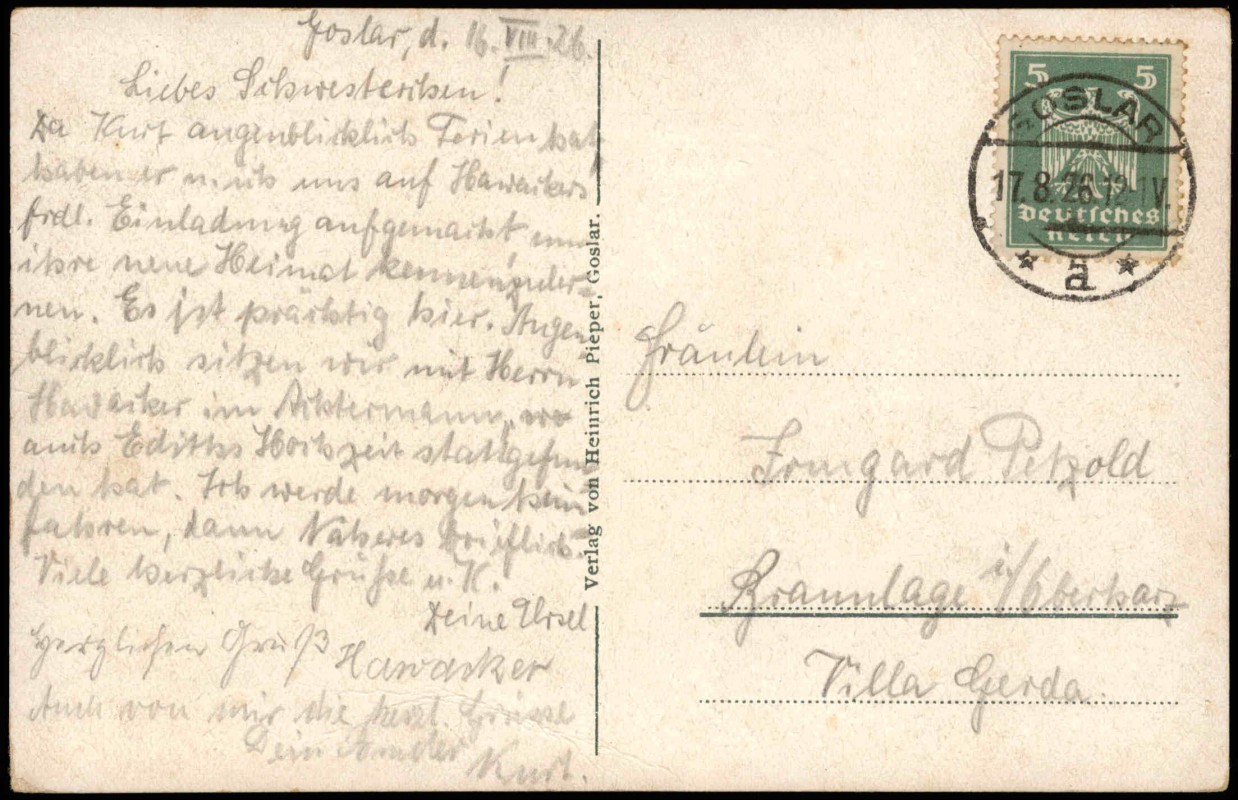 Goslar, d. 16. VIII. 26.
Liebes Schwesterchen!
Da Kurt augenblicklich Ferien hat,
haben er u. ich uns auf Hawackers
frdl. Einladung aufgemacht, um
ihre neue Heimat kennenzuler-
nen. Es ist prächtig hier. Augen-
blicklich sitzen wir mit Herrn
Hawacker im Achtermann, wo
auch Ediths Hochzeit stattgefun-
den hat. Ich werde morgen heim
fahren, dann Näheres brieflich.
Viele herzliche Grüße u. K.
Deine Ursel
Herzlichen Gruß Hawacker
Auch von mir die herzl. Grüsse
Dein Bruder
Kurt.
Verlag von Heinrich Pieper, Goslar.
5 5
Deutsches
Reich
GOSLAR
17.8.26.12-1V.
* a *
Fräulein
Irmgard Petzold
Braunlage i/Oberharz
Villa Gerda.